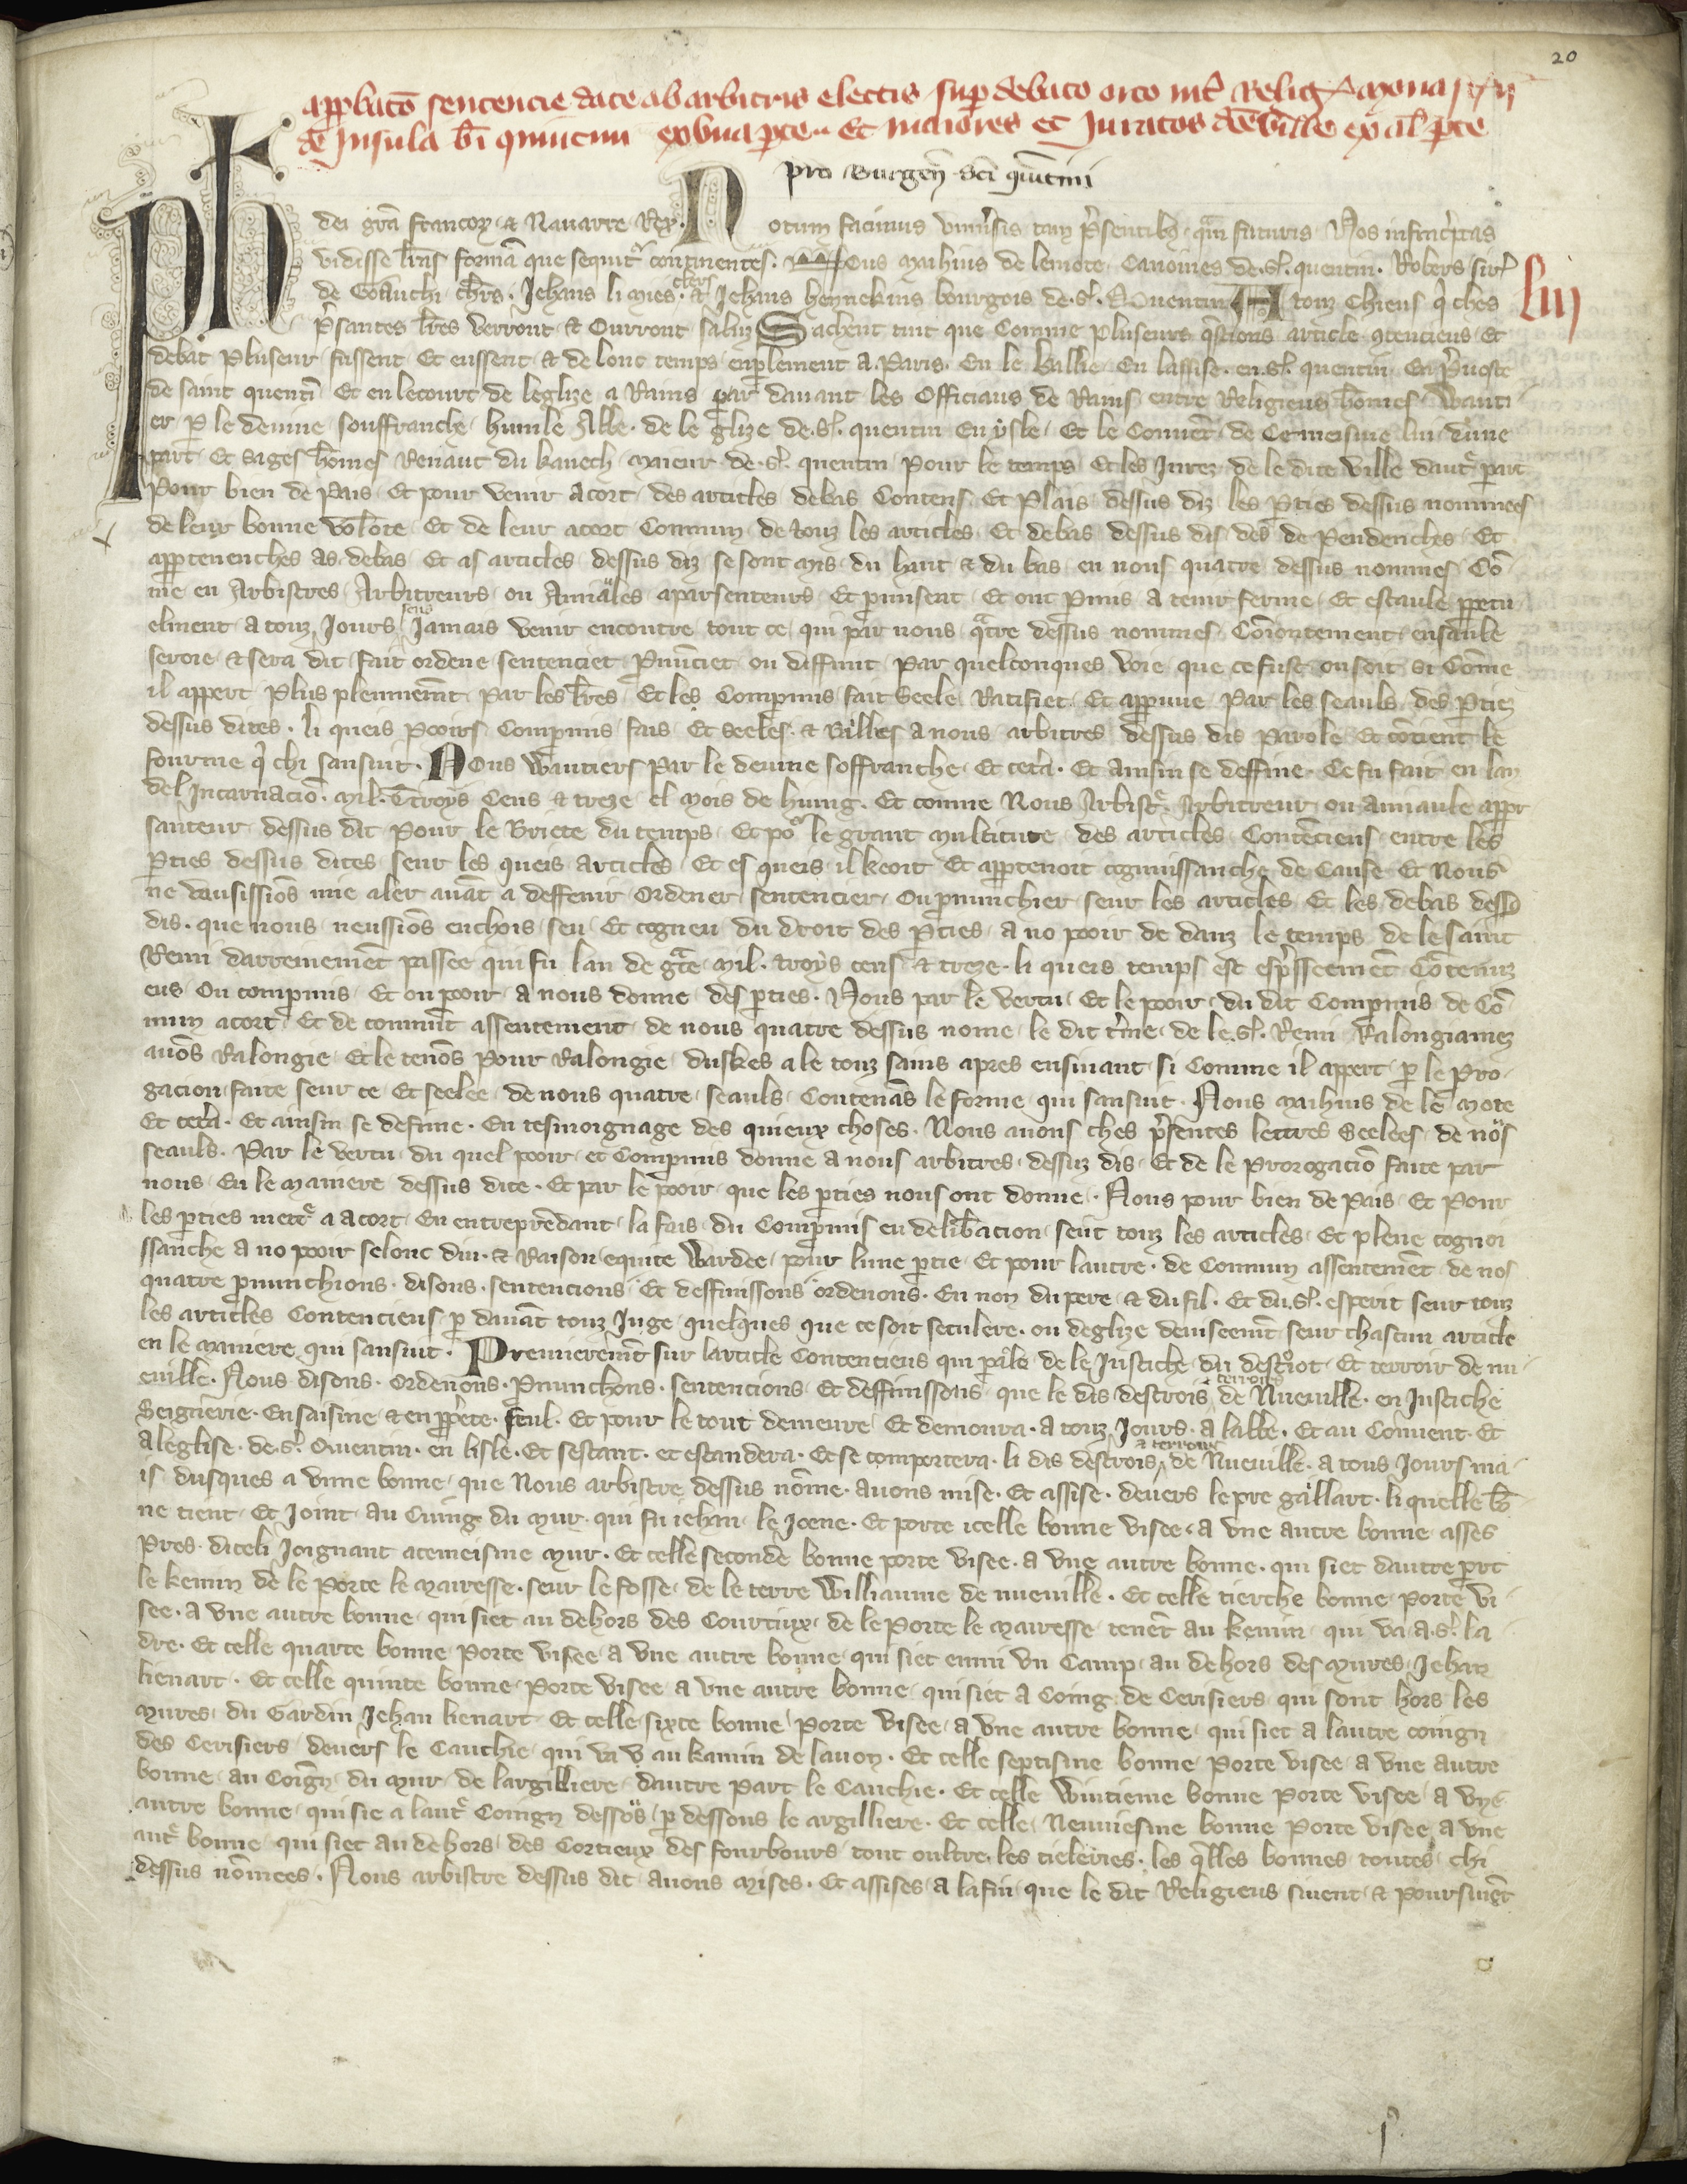 20
appbato sentencie date ab arbitris electis sup debato orto int Relig
de Insula bi quintini ex una pte Et maiores et Juratos dce ville ex al pte
pro Burgen sci quintini
Ph dei gra francor & Nauarre Rex. Notum facimus uniusis tam psentibz qm futuris Nos infrascptas
vidisse lras formam que sequitr continentes. Nous Mahius de lemote Canoines de st. quentin. Robers sires
de Chrs. Jehans li mies clers & Jehans hennekins bourgois de st. Quentin A touz Chieus q ches
psantes lres verront & Ourront salut Sachent tuit que Comme pluseurs qstions article contenciens Et
debat pluseur fussent Et eussent & de lonc temps en plement a Paris. En le baillie En lassise en st. quentin En Pvoste
de saint quenti Et en lecourt de leglize a Rains par davant les Officiaus de Rains entre Religieus homes Wauti
er p le devine souffranche humle Abbe de le glize de st. quentin En ysle Et le Convent de Cemeisme liu dune
part Et sages homes Renaut du kauech maieur de st. quentin pour le temps Et les Jurez de le dite ville dautr part
pour bien de pais Et pour venir acort des articles debas Contens Et plais dessus diz les pties dessus nommees
de leur bonne volente Et de leur acort Commun de touz les articles Et debas dessus dis des de pendenches Et
apptenenches as debas Et as articles dessus diz se sont mis du haut & du bas en nous quatre dessus nommes Co
me en Arbistres Arbitreurs ou Amiables apaisenteurs Et pmisent Et ont pmis a tenir ferme Et estaule ppetu
elment a touz Jours sens Jamais venir encontre tout ce qui par nous qtre dessus nommes Comontement ensaule
seroie & sera dit fait ordene sentenciet pnunciet ou diffinit par quelconques voie que ce fust ou soit si Come
il appert plus plennemt par les lres Et les Compmis fait seele Ratifiet Et appuue par les seauls des pties
dessus dites. li queis pooirs Compmis fais Et seeles & Baillies a nous arbitres dessus dis parole Et contient le
fourme q chi sansuit. Nous Wautiers par le devine soffranche Et cetera. Et ainsin se deffine. Ce fu fait en lan
del Incarnacio. mil. troys Cens & treze el mois de Iuing. Et comme Nous Arbistr Arbitreur ou amiaule appr
santeur dessus dit pour le Briete du temps Et po le grant multitute des articles Contenciens entre les
pties dessus dites seur les queis articles Et es queis il keoit Et apptenoit cognissanche de Cause Et Nous
ne vausissios mie aler avat a deffenir Ordener sentencier Ou pnunchier seur les articles Et les debas dess
dis. que nous neussios enchois seu Et cogneu du droit des pties a no pooir de danz le temps de le saint
Remi darrenement passee qui fu lan de gce mil. troys cens & treze. li queis temps est espsseemet Cotenuz
eus Ou compmis Et ou pooir a nous donne des pties. Nous par le vertu Et le pooir du dit Compmis de Co
mun acort Et de commut assentement de nous quatre dessus nome le dit tme de le st. Remi Ralongiamez
avos Ralongie Et le tenos pour Ralongie duskes a le touz sains apres ensivant si Comme il appert p le pro
gacion faite seur ce Et seelee de nous quatre seauls Contenas le forme qui sansuit. Nous mahius de le mote
Et cetera. Et ainsin se defme. En tesmoignage des quieux choses. Nous avons ches psentes lettres seelees de nos
seauls. Par le vertu du quel pooir et Compmis donne a nous arbitres dessuz dis Et de le prorogatio faite par
nous En le maniere dessus dite. Et par le pooir que les pties nous ont donne. Nous pour bien de pais Et pour
les pties mettr a acort En entrepredant la fais du Compmis eu delibacion seur touz les articles Et plene cognoi
ssanche a no pooir selonc diu. & Raison equite Wardee pour lune ptie Et pour lautre. de Commun assentemet de nos
quatre pnunchions. disons. sentencions Et deffinissons ordenons. En non du pere & du fil. Et du st. esperit seur touz
les articles Contenciens p davat touz Juge quelqes que ce soit seculere. ou deglize deuiseemt seur chascun article
en le maniere qui sansuit. Premieremt sur larticle Contenciens qui ple de le Justiche du destrot Et terroir de nu
eville. Nous disons. Ordenons. Pnunchons. sentencions Et deffinissons que le dis destrois & terroirs de Nueville. en Justiche
Seignerie. En saisine & en pprete. seul. Et pour le tout demeure Et demoura. a touz Jours. a labbe. Et au Convent Et
aleglise. de st. Quentin. en lisle. Et sestant. et estandera. Et se comportera. li dis destrois & terroirs de Nueville. a tous Jours ma
is dusques a vnne bonne que Nous arbistre dessus nome. avons mise. Et assise. devers le pre gallart. li quelle bo
ne tient Et Joint au Cuing du mur qui fu iehan le Joene. Et porte icelle bonne visee a vne autre bonne asses
pres diceli Joignant acemeisme mur. Et celle seconde bonne porte visee. a vne autre bonne. qui siet dautre prt
le kemin de le porte le mairesse. seur le fosse de le terre Williaume de nueville. Et celle tierche bonne porte vi
see. a vne autre bonne qui siet au dehors des Courtiux de le porte le mairesse tenet au kemin qui va a st. la
dre. Et celle quarte bonne porte visee a vne autre bonne qui siet enmi un Camp au dehors des mures Jehan
lienart. Et celle quinte bonne porte visee a vne autre bonne qui siet a Coing de Cerisiers qui sont hors les
mures du Gardin Jehan lienart Et celle sixte bonne porte visee a vne autre bonne qui siet a lautre coingn
des Cerisiers devers le Cauchie qui va v au kamin de lavon. Et celle septisme bonne porte visee a vne autre
bonne au Coign du mur de largilliere dautre part le Cauchie. Et celle Wiutieme bonne porte visee a vne
autre bonne qui sie a lautr Coingn dessos p dessous le argilliere. Et celle Neuviesme bonne porte visee a vne
autr bonne qui siet au dehors des Cortieux des fourbours tout oultre les tieleries. les qlles bonnes toutes chi
dessus nomees. Nous arbistre dessus dit avons mises. Et assises a la fin que le dit Religieus sivent & poursivet